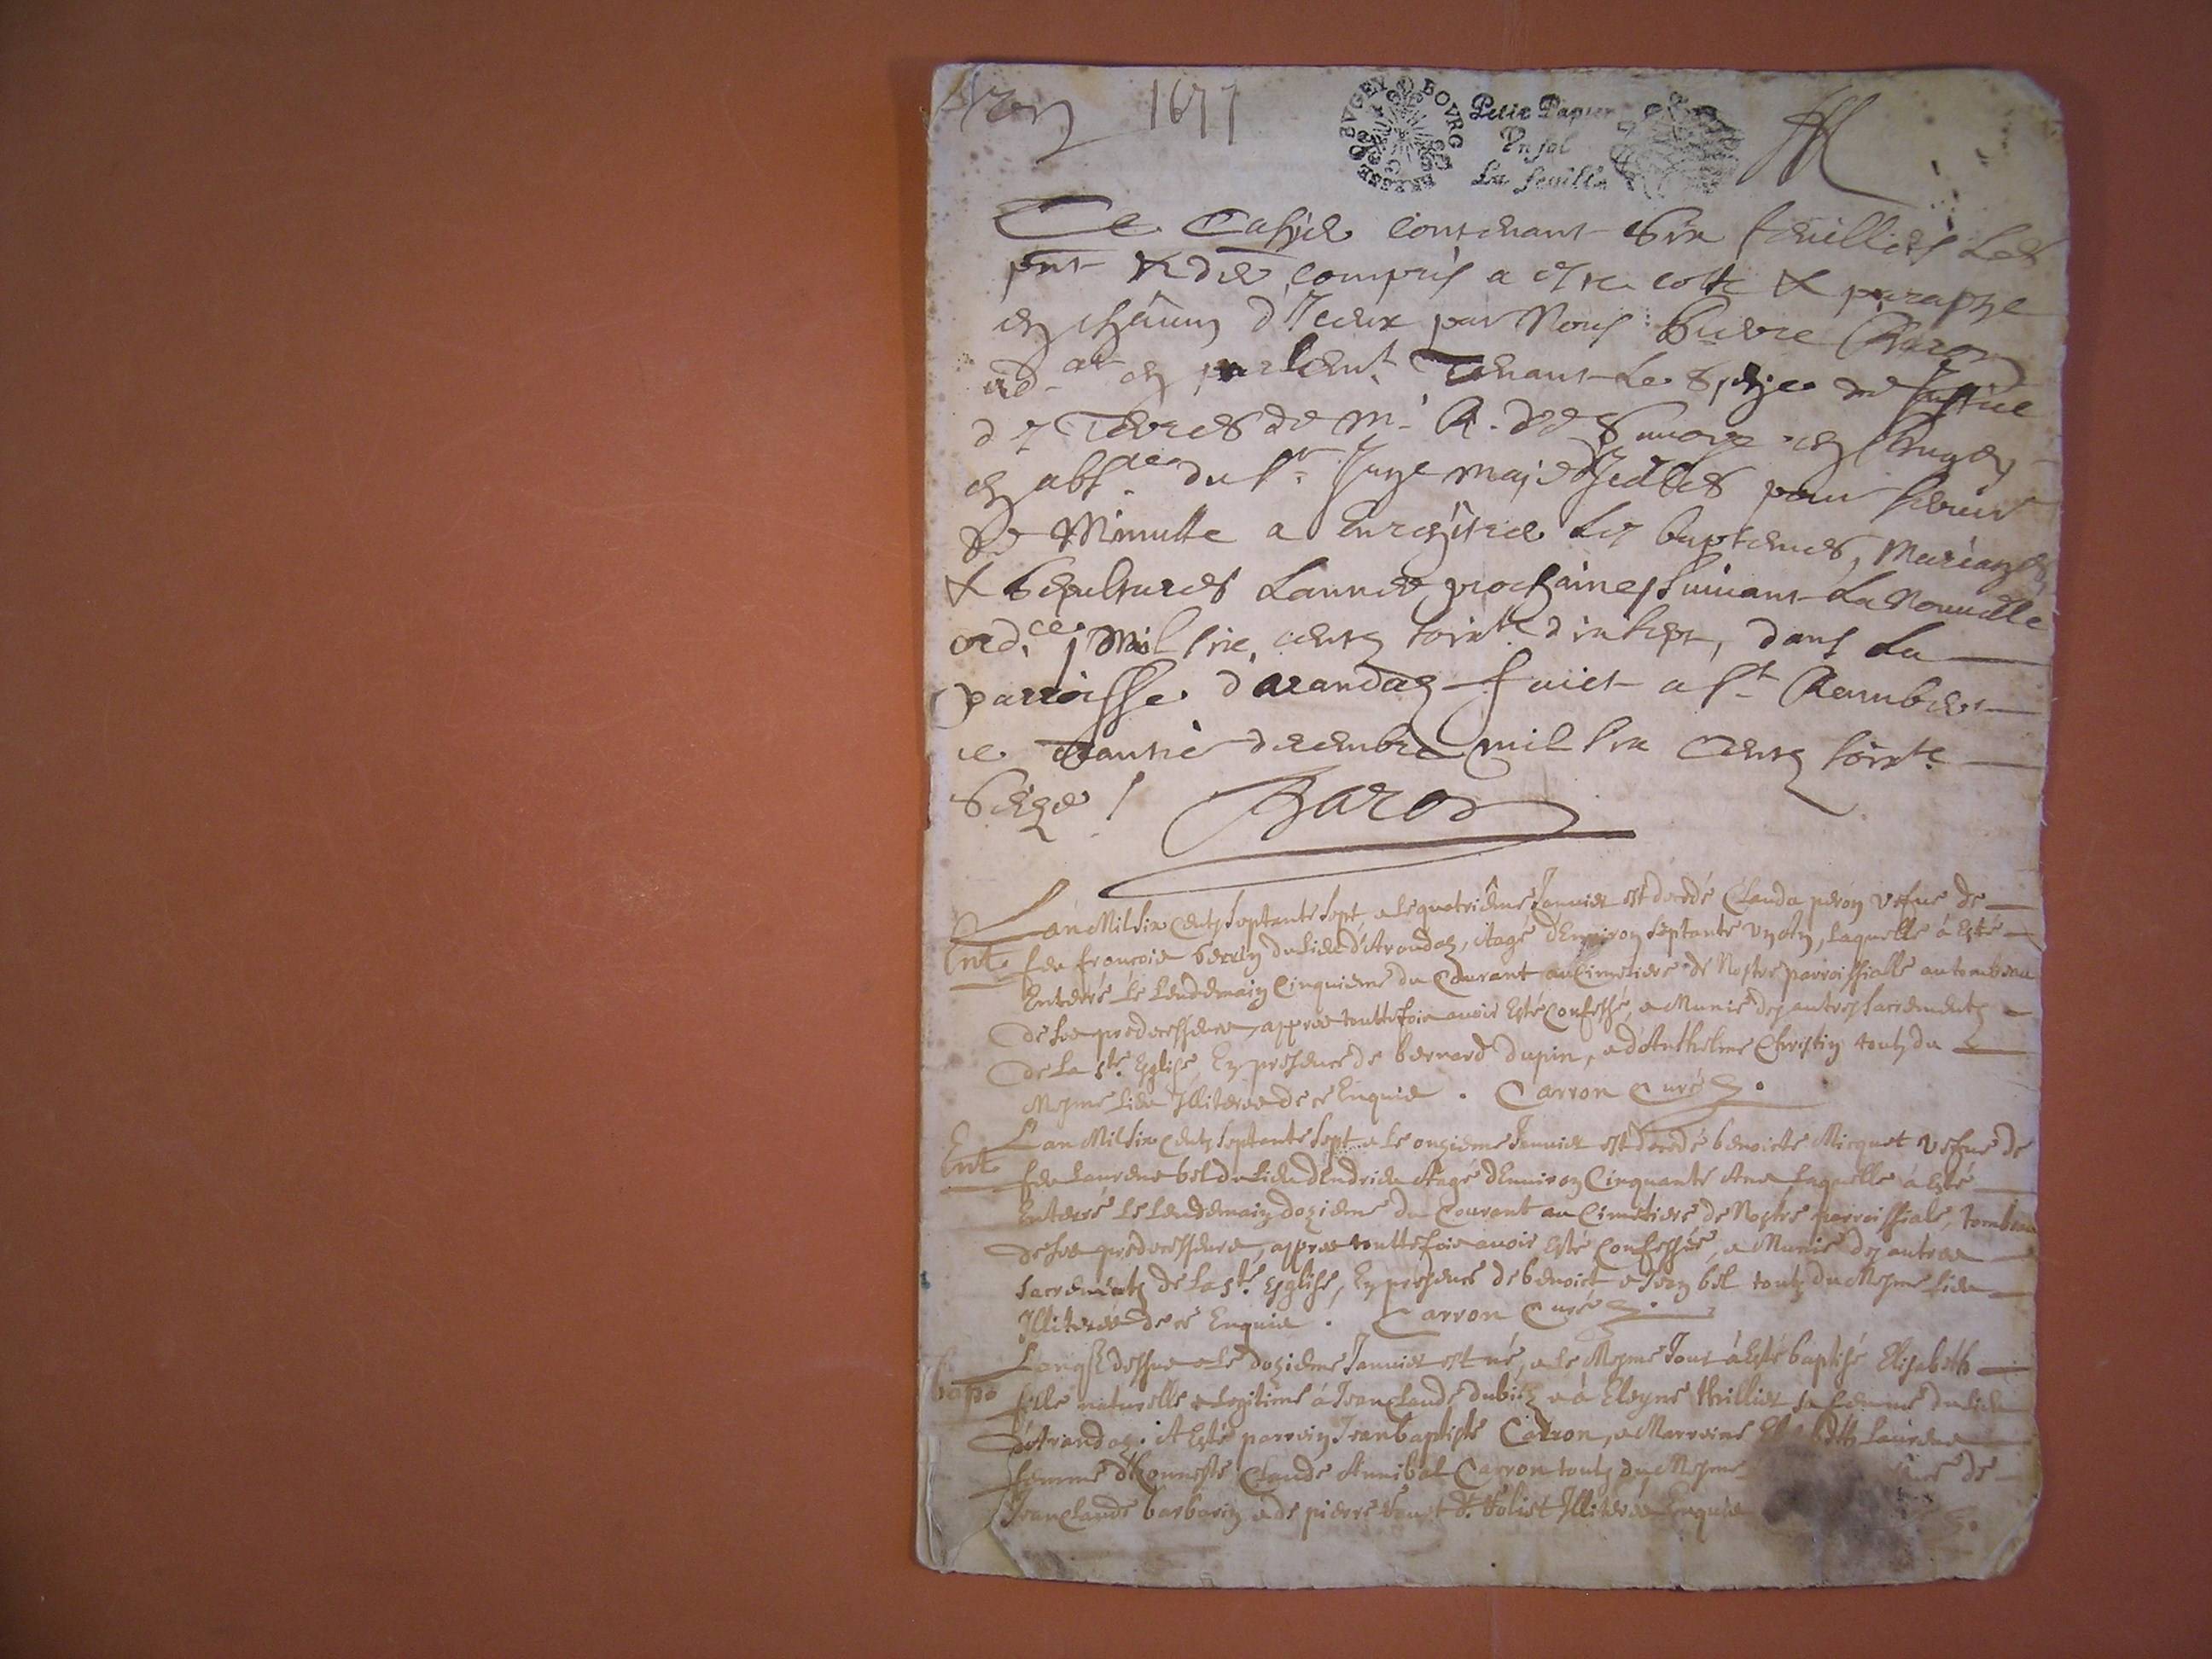 1677
BVGEY BOVRG BRESSE
Petit Papier
Un sol
La feuille
Ce Cahier contenant Six feuillets Les
pnt & der compris a este cotte & paraphe
en chacun d'Iceux par Nous Pierre Baron
adat en parlemt Tenant Le Siege de Justice
des Terres de Mr A. R. de Savoye en Bugey
en absce du Sr Juge Maje d'Icelles pour servir
de Minutte a Enregistrer Les baptemes, Mariages,
& Sepultures Lannee prochaine suivant La Nouvelle
ordce Mil six cents soixte dix sept, dans La
parroisse darandaz faict a St Rambert
ce trantie decembre mil six Cents soixte
Seize / Baron
Lan Mil six Cents septante sept, et le quatriême Janvier est decedé Clauda peron vefve de
Ent. feu francois berrin du lieu d'Arandaz, Aagé d'Environ septante un an, laquelle à Esté
Enterré le lendemain Cinquieme du Courant au Cimetiere de Nostre parroissialle au tombeau
de ses predecesseurs, appres touttefois avoir Esté Confessé, et Munie des autres sacrements
de la ste. Esglise En presence de bernard dupin, et d'Anthelme Christin touts du
Mesme lieu Illiteres de ce Enquis. Carron Curé
Lan Mil six Cents septante sept et le onzieme Janvier est decedé benoitte Micquet vefve de
Ent. feu Laurens bel du lieu d'Indrieu Aagé d'Environ Cinquante Ans laquelle à Esté
Enterré le lendemain dozieme du Courant au Cimetiere de Nostre parroissiale, tombeau
de ses predecesseurs, appres touttefois avoir Esté Confessée, et Munie des autres
sacrements de la ste. Esglise, En presence de benoict et Jean bel touts du Mesme lieu
Illiteres de ce Enquis. Carron Curé
Lan q dessus et le dozieme Janvier est né, et le Mesme Jour à Esté baptisé Elisabeth
bapt fille naturelle et legitime à Jean Claude dubiez et à Eleyne thrillier sa femme du lieu
d'Arandaz. A Esté parrein Jean baptiste Carron, et Marreine Elisabeth Laurens
femme d'honneste Claude Annibal Carron touts du Mesme de
Jean Claude barbarin et de pierre Illiteres Enquis